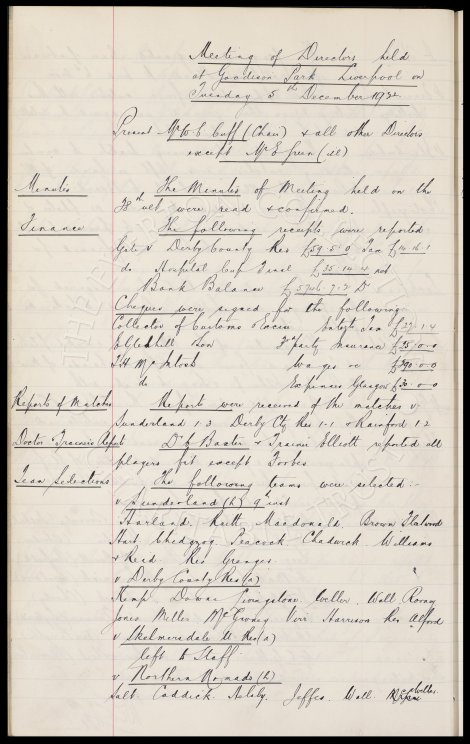 Meeting of Directors held
at Goodison Park Liverpool on
Tuesday 5th December 1922
Present Mr W C Cuff (Chair) & all other Directors
except Mr E Green (ill)
Minutes
The Minutes of Meeting held on the
28th ult were read & confirmed.
Finance
The following receipts were reported
Gate v Derby County Res £59.5.0 Tax £14.16.1
do Hospital Cup £35.14.4 net
Bank Balance £5746.7.2 D
Cheques were signed for the following
Collector of Customs & Excise Tax £27.1.4
& Son 3rd party Insurance £25.0.0
McIntosh Wages £390.0.0
do Expenses Glasgow £30.0.0
Reports of Matches
Reports were received of the matches v
Sunderland 1.3 Derby Cty Res 1-1 & Rainford 1.2
Doctor & Trainers Report
Dr Baxter & Trainer Elliott reported all
players fit except Forbes
Team Selections
The following teams were selected :-
v Sunderland (h) 9th inst
Harland. Raitt Macdonald. Brown Fleetwood
Hart Chedgzoy Peacock Chadwick Williams
& Reid Res Grenyer.
v Derby County Res (a)
Kemp Downs Livingstone Weller. Wall Rooney
Jones Miller McGrovey Virr Harrison Res Alford
v Skelmersdale U Res (a)
left to Staff
v Northern Nomads (h)
Salt. Caddick. Jeffs. Wall.